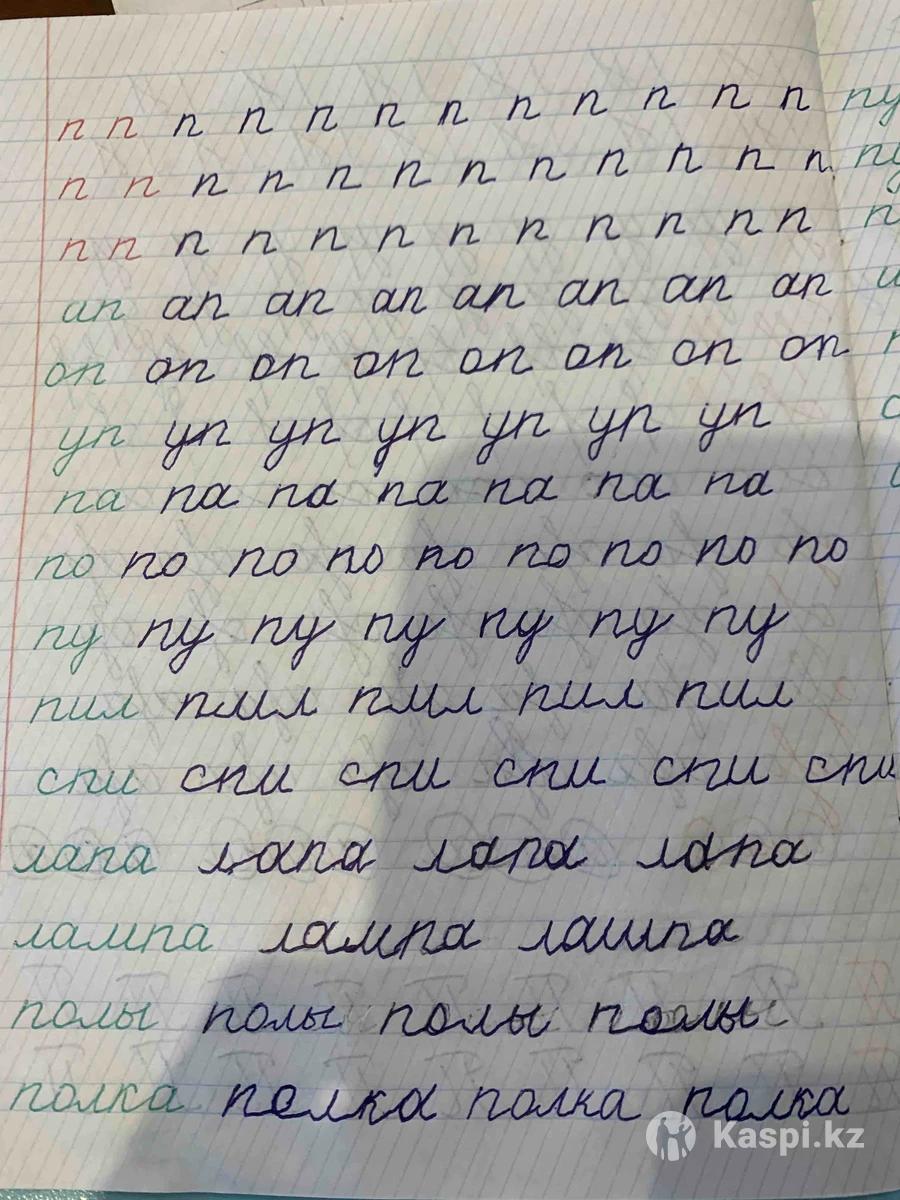 п п п п п п п п п п п п пу
п п п п п п п п п п п п
п п п п п п п п п п п п п
ап ап ап ап ап ап ап ап
оп оп оп оп оп оп оп оп
уп уп уп уп уп уп уп
па па па па па па па
по по по по по по по по по
пу пу пу пу пу пу пу
пил пмл пмл пил пил
спи спи спи спи спи спи
лапа лапа лапа лапа
лампа лампа лашпа
полы полы полы полы
полка полка полка полка
Kaspi.kz